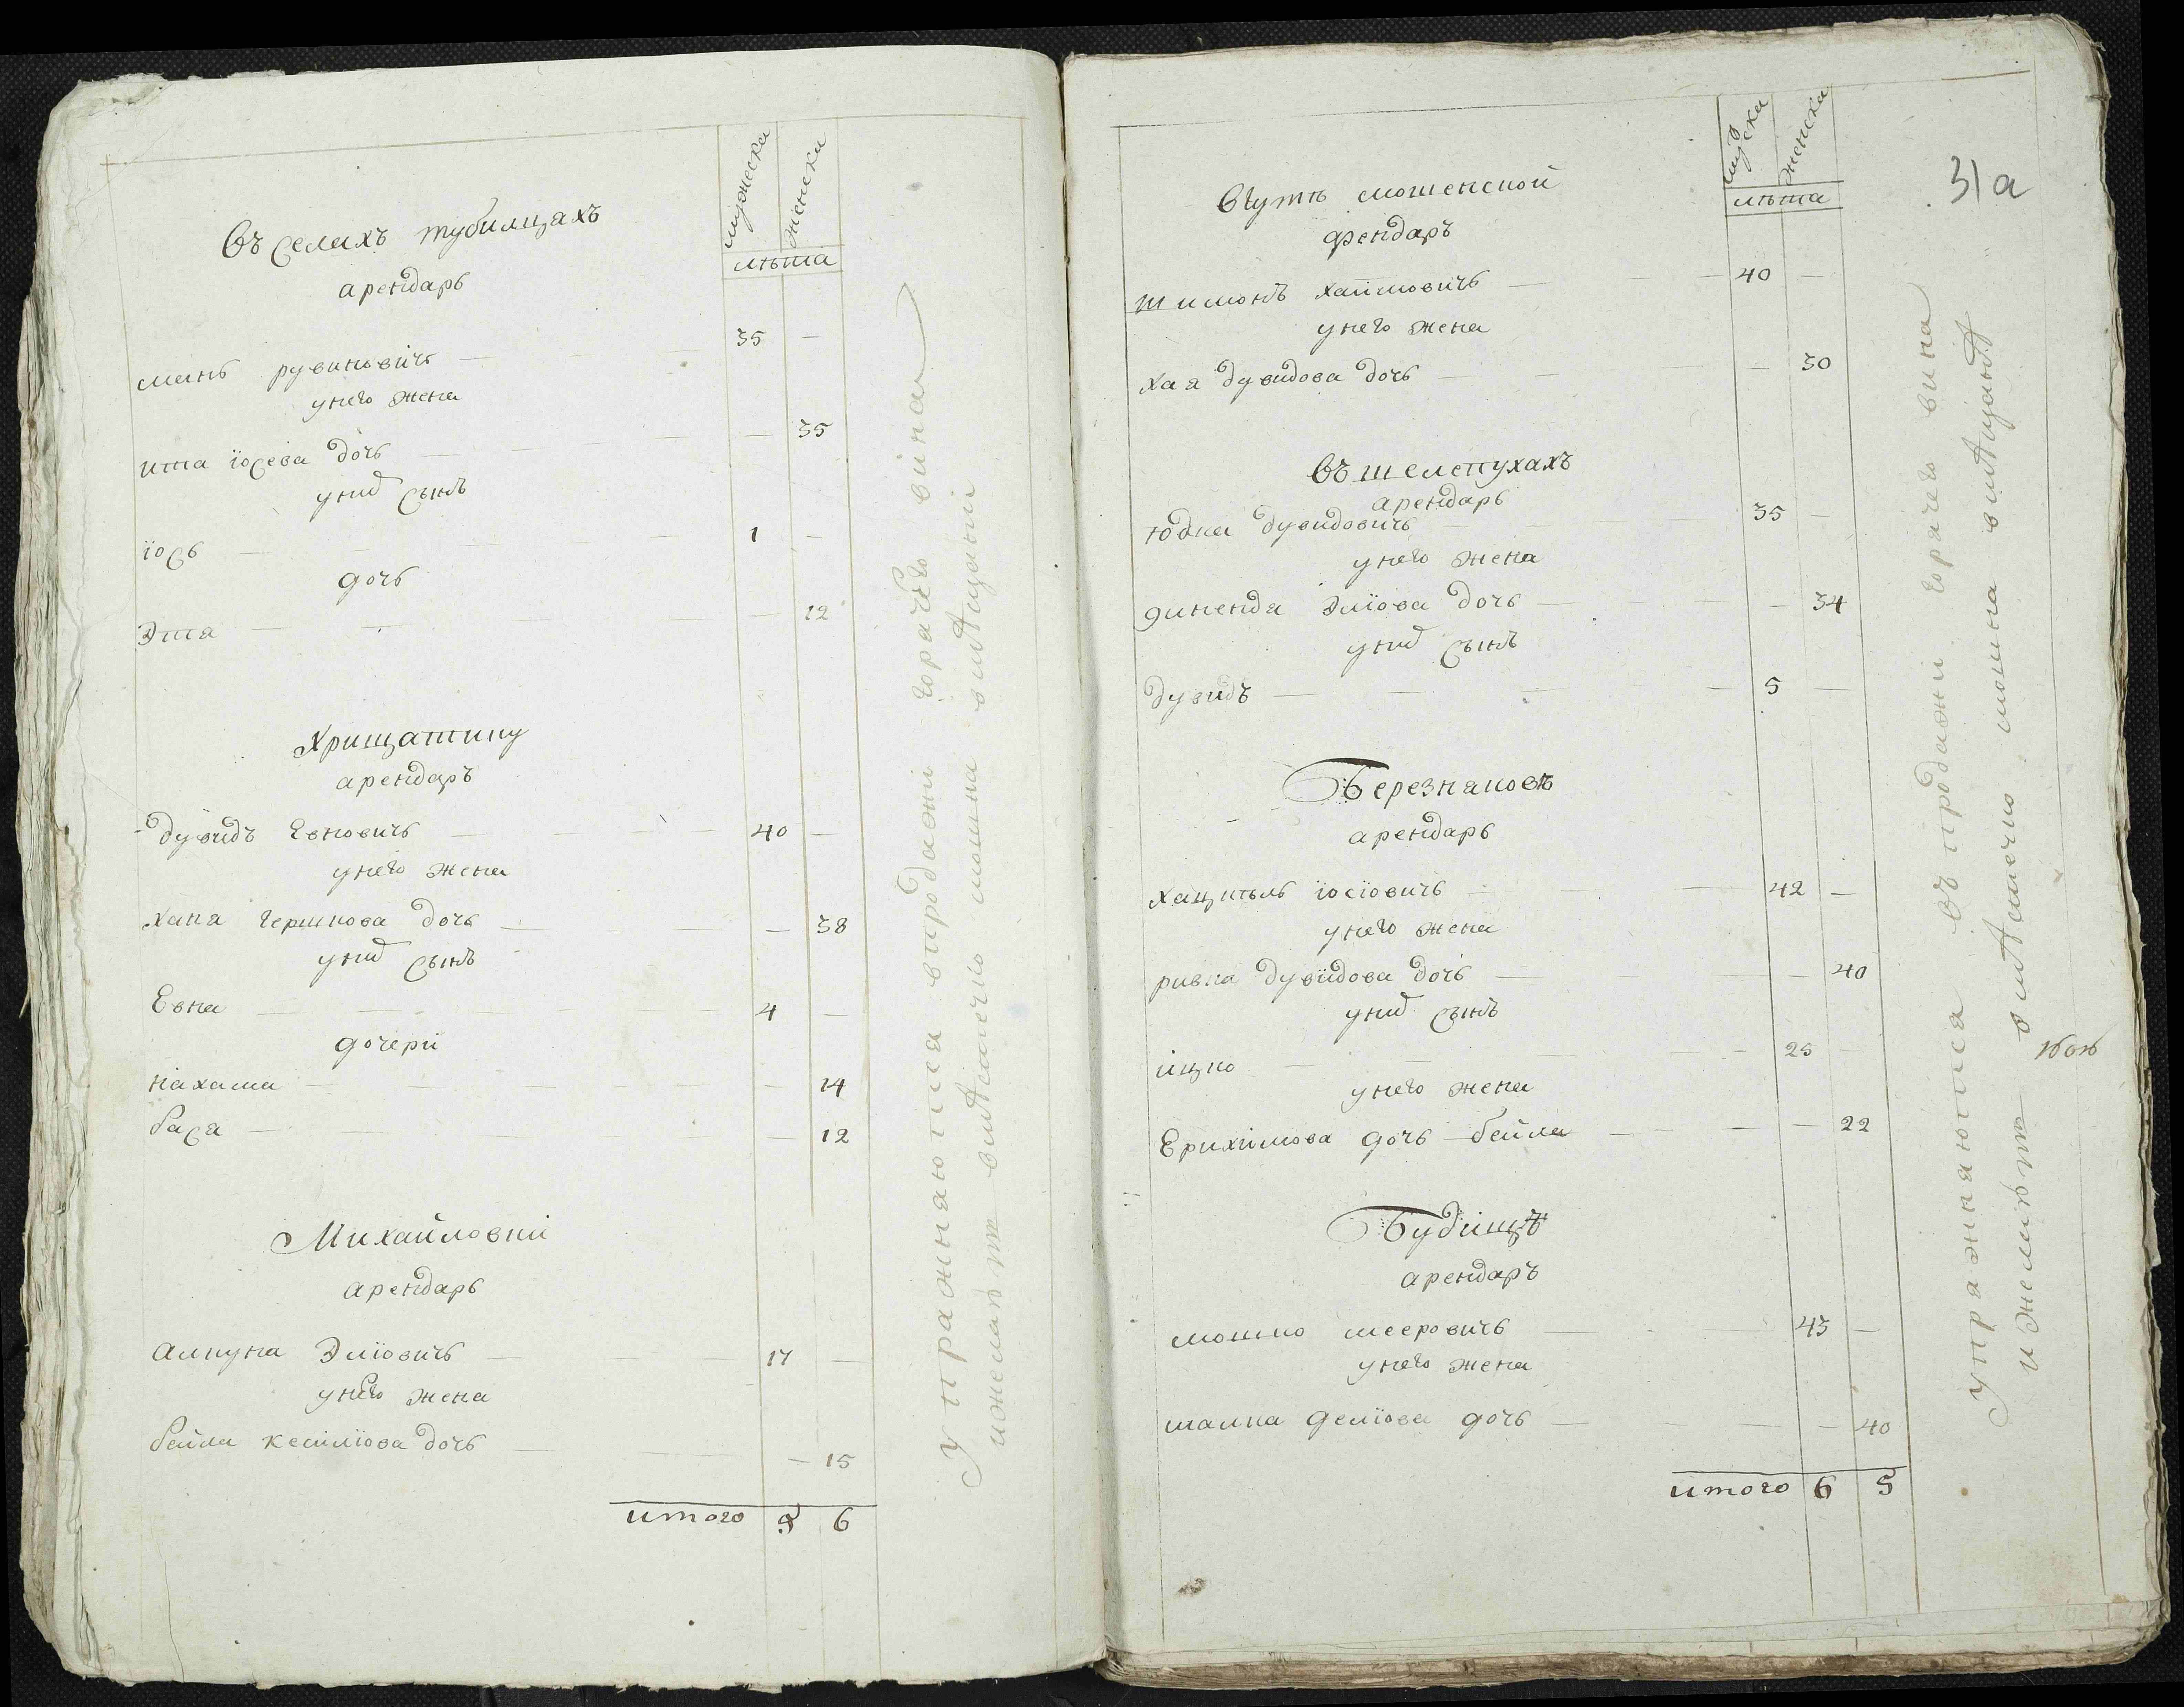 мужеска
женска
лѣта
въ селахъ тубилцахъ
арендарь
мань рувиновичь — 35 —
у него жена
ита іосева дочь — — 35
у нихъ сынъ
іось — 1 —
дочь
Эта — — 12
Хрищатику
арендаръ
дувидъ Евновичь — 40 —
у него жена
хана гершкова дочь — — 38
у нихъ сынъ
Евна — 4 —
дочери
нахама — — 14
бася — — 12
Михайловки
арендарь
алкуна Эліовичь — 17 —
у него жена
бейла дочь — — 15
итого 5 6
упражняются впродажи горячего вина
мошна
мужска
женска
лѣта
31а
Вкутѣ мошенской
арендаръ
шимонъ хаимовичь — 40 —
у него жена
хая дувидова дочь — — 30
въ шелепухахъ
арендарь
юдка дувидовичь — 35 —
у него жена
диненда Эліова дочь — — 34
у нихъ сынъ
дувидъ — 5 —
Березняковъ
арендарь
хацкѣль іосіовичь — 42 —
у него жена
ривка дувидова дочь — — 40
у нихъ сынъ
ицко — 25 —
у него жена
Ерихимова дочь бейла — — 22
Будищъ
арендаръ
мошко мееровичь — 43 —
у него жена
малка деліова дочь — — 40
итого 6 5
упражняются въ продажи горячего вина
мошна